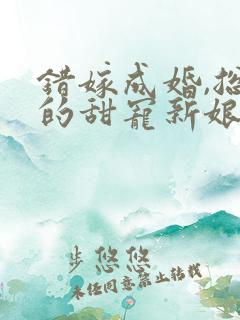 错嫁成婚,总
的甜宠新娘
步悠悠
未经同意禁止转载